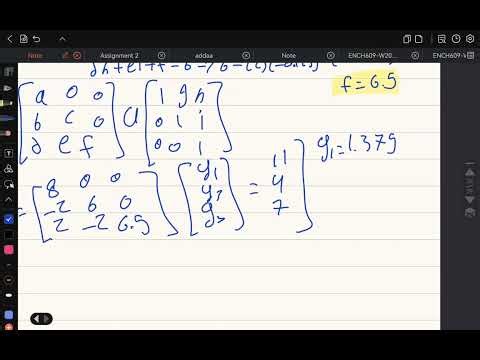 Note Assignment 2 addaa Note ENCH609-W20... ENCH609-
f=6.5
[a 0 0
b c 0
d e f] [1 g h
0 1 i
0 0 1]
= [8 0 0
-2 6 0
2 -2 6.5] [y1
y2
y3] = 11
4
7] y1=1.375